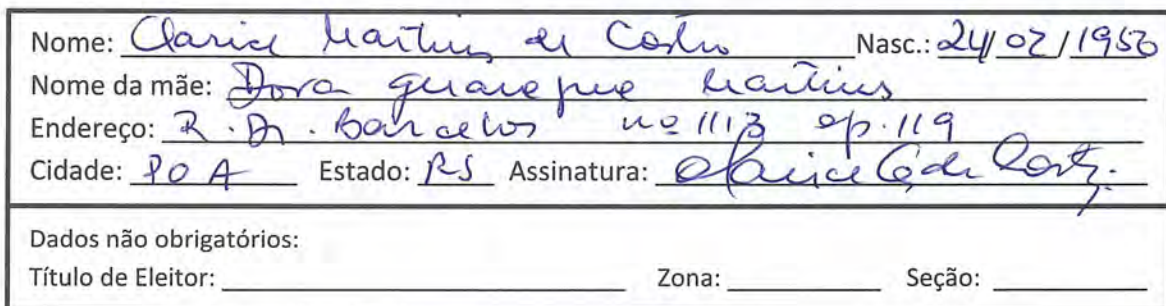 Nome: Clarice Martins de Castro Nasc.: 24/02/1956
Nome da mãe: Dora Martins
Endereço: R. Dr. Barcelos nº 1113 ap. 119
Cidade: POA Estado: RS Assinatura: Clarice
Dados não obrigatórios:
Título de Eleitor: Zona: Seção: